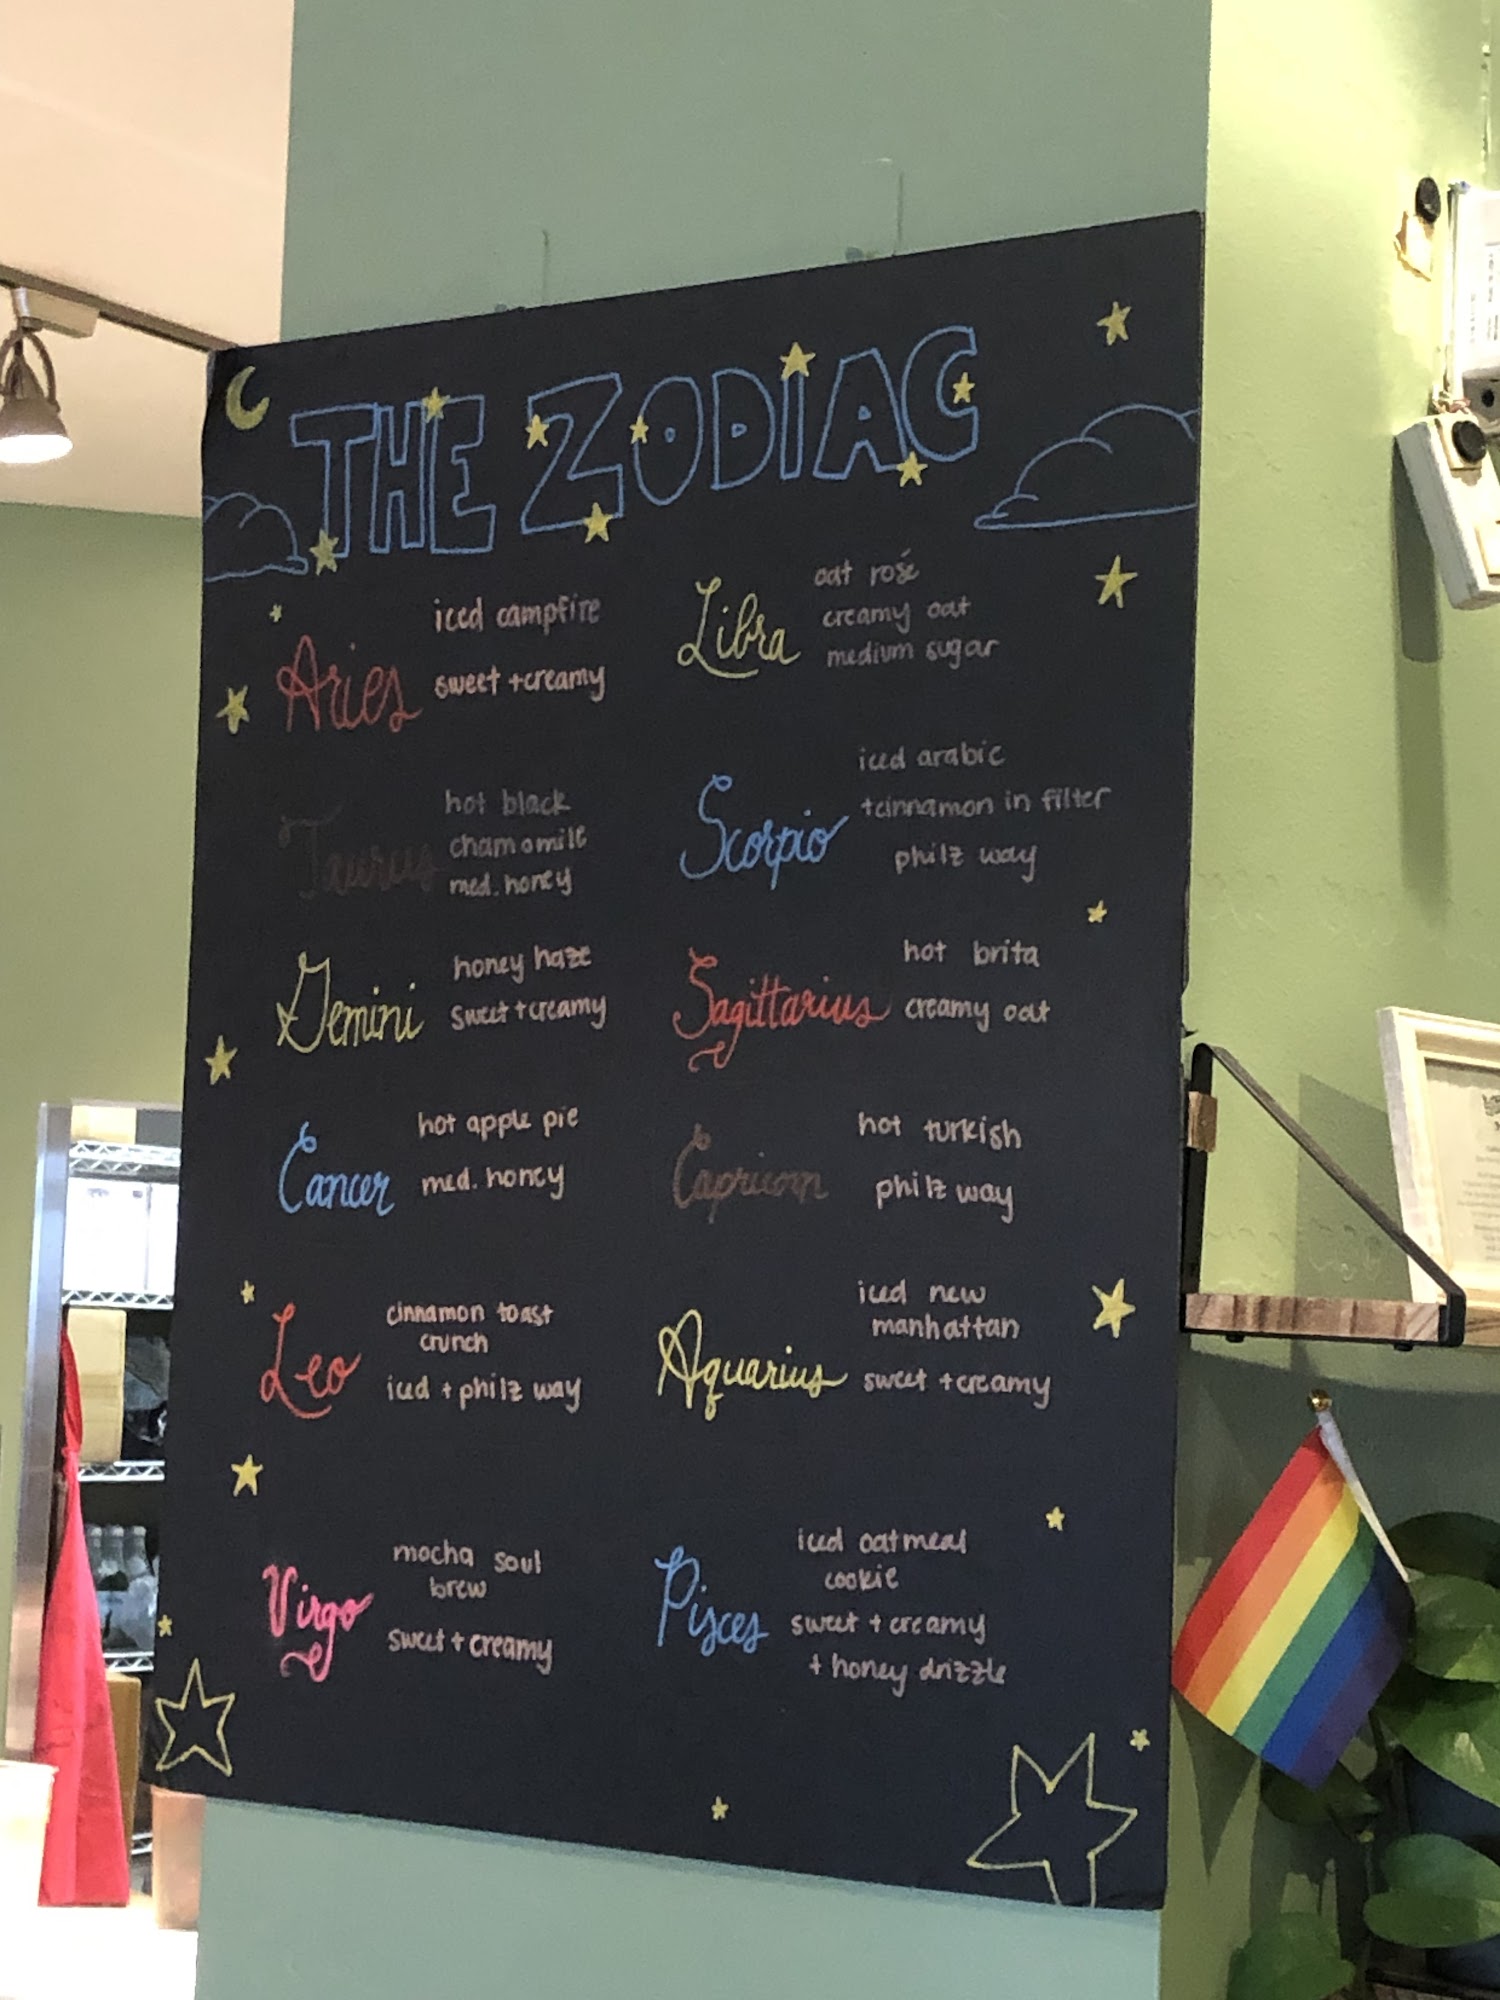 THE ZODIAC
Aries
iced campfire
sweet + creamy
Taurus
hot black
chamomile
med. honey
Gemini
honey haze
sweet + creamy
Cancer
hot apple pie
med. honey
Leo
cinnamon toast
crunch
iced + philz way
Virgo
mocha soul
brew
sweet + creamy
Libra
oat rosé
creamy oat
medium sugar
Scorpio
iced arabic
+ cinnamon in filter
philz way
Sagittarius
hot brita
creamy oat
Capricorn
hot turkish
philz way
Aquarius
iced new
manhattan
sweet + creamy
Pisces
iced oatmeal
cookie
sweet + creamy
+ honey drizzle